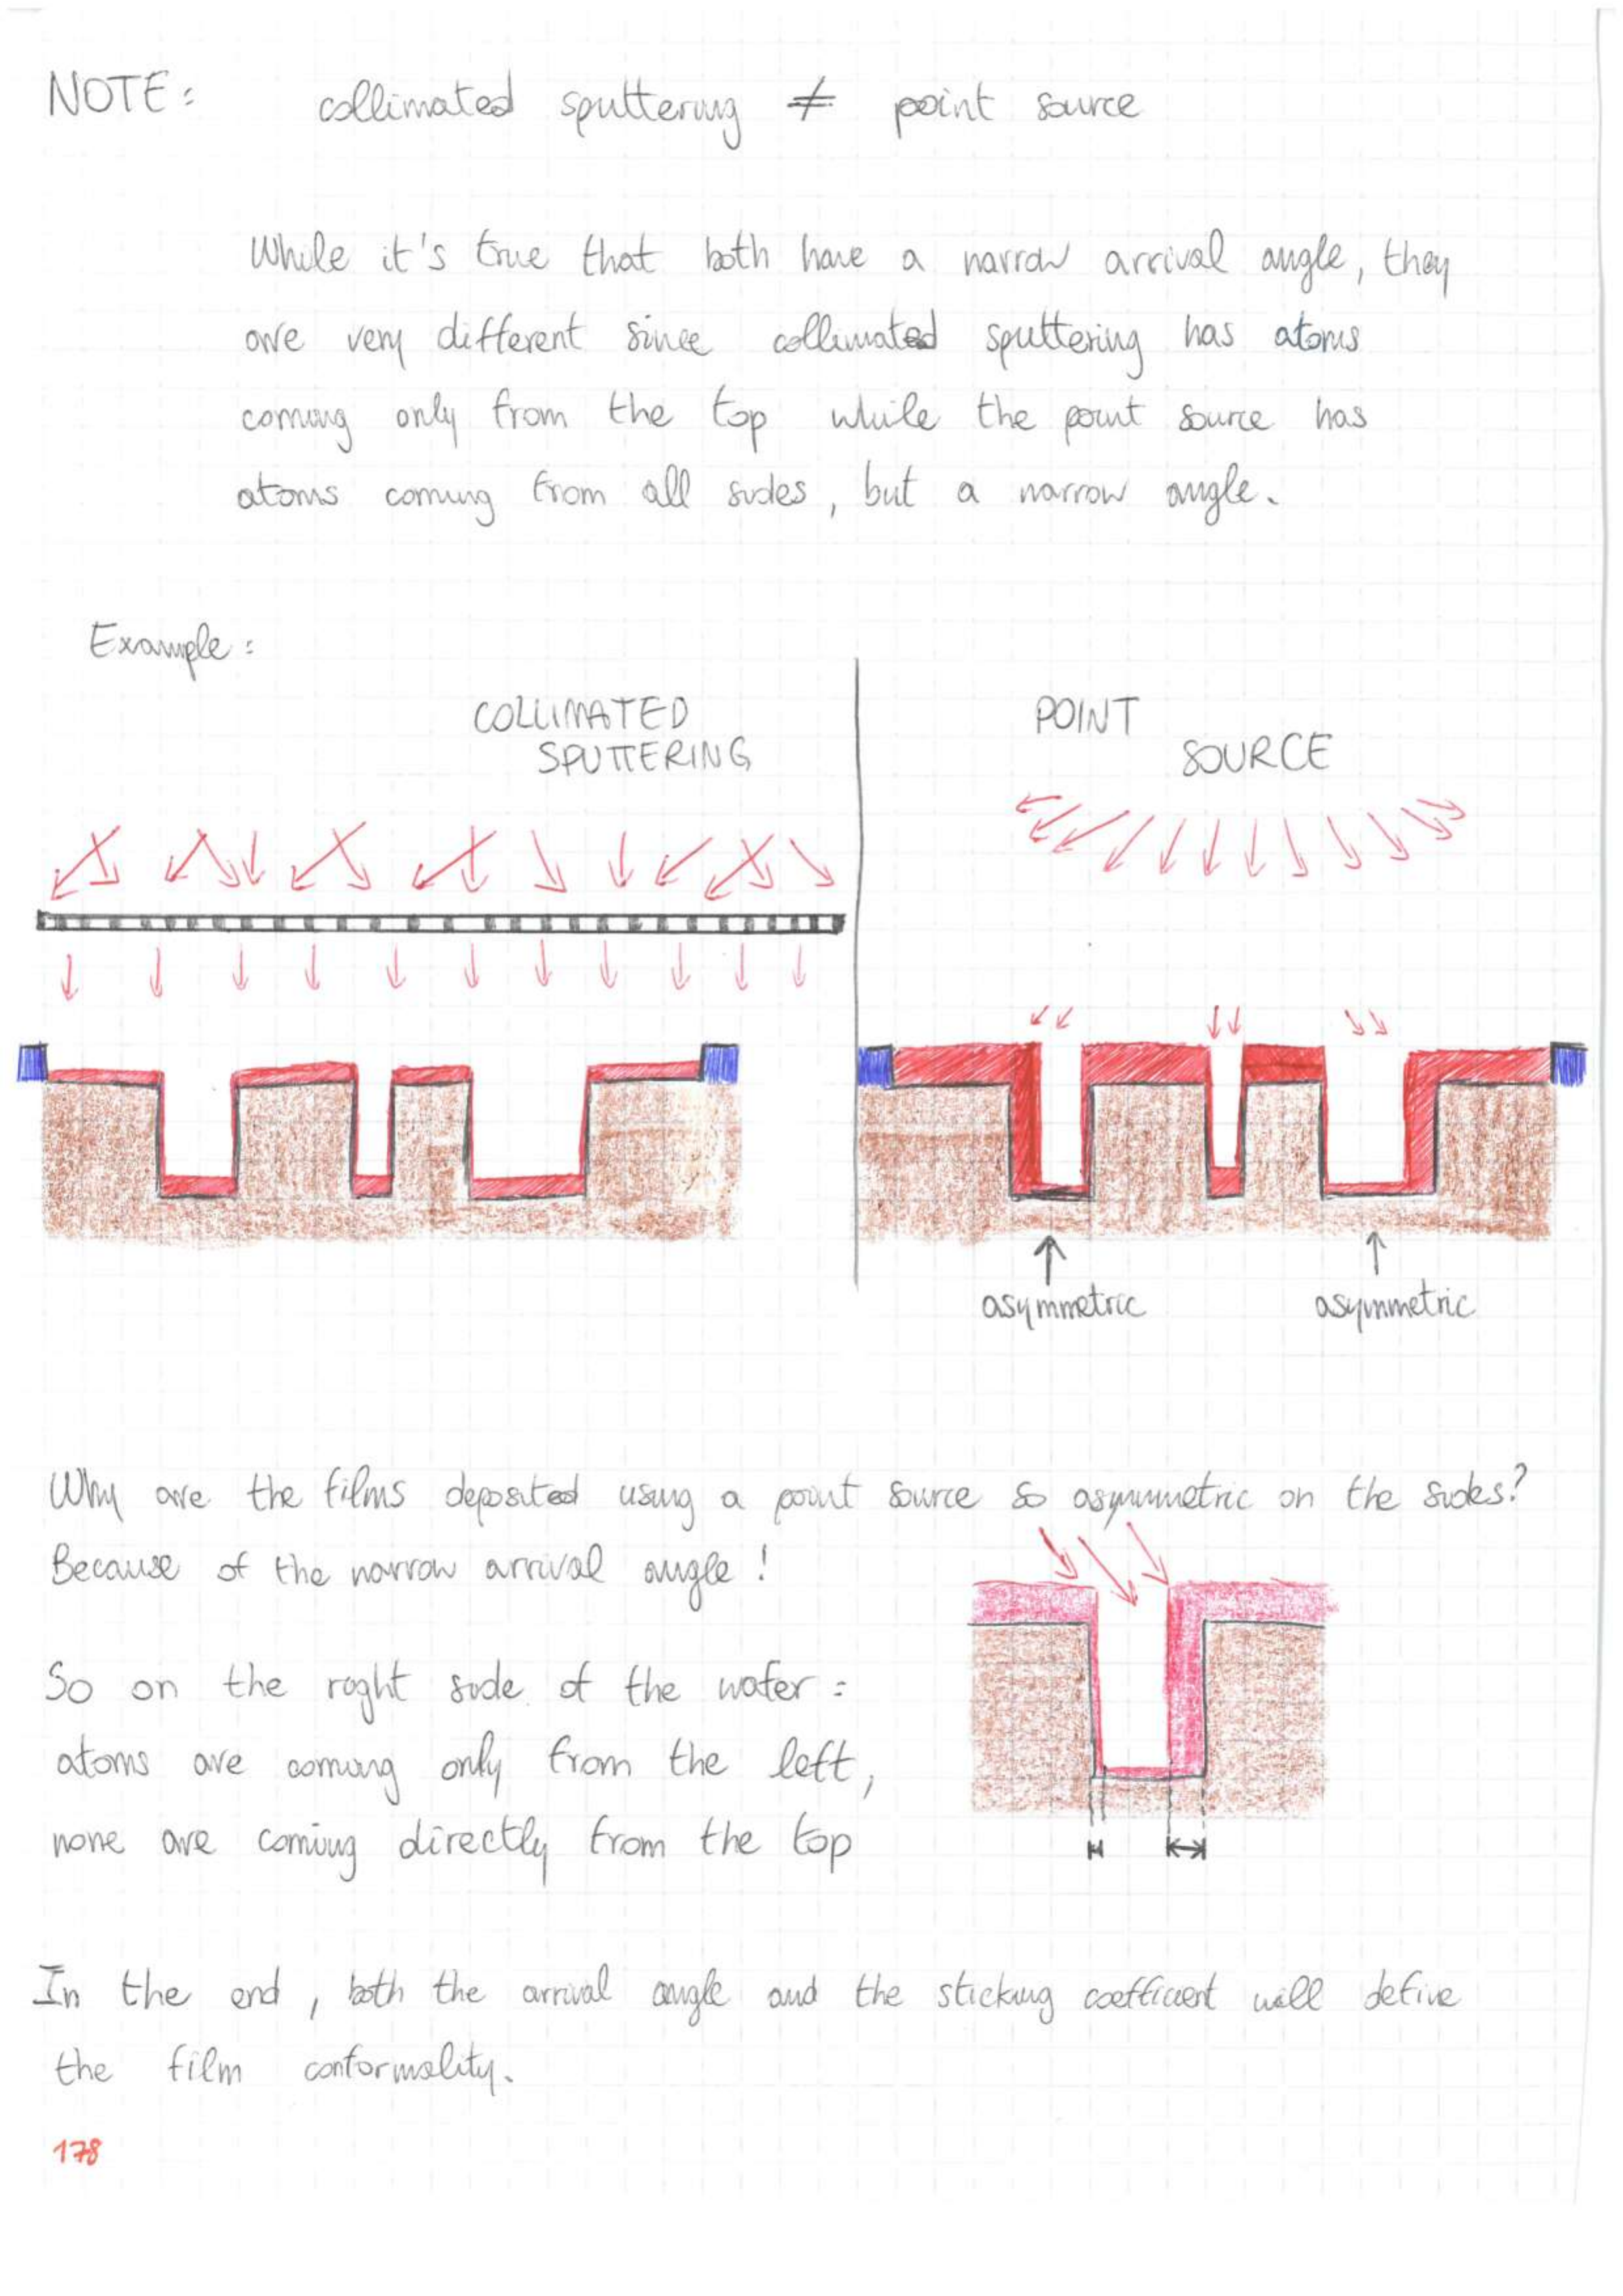 NOTE: collimated sputtering ≠ point source
While it's true that both have a narrow arrival angle, they
are very different since collimated sputtering has atoms
coming only from the top while the point source has
atoms coming from all sides, but a narrow angle.
Example:
COLLIMATED
SPUTTERING
POINT
SOURCE
asymmetric
asymmetric
Why are the films deposited using a point source so asymmetric on the sides?
Because of the narrow arrival angle!
So on the right side of the wafer:
atoms are coming only from the left,
none are coming directly from the top
In the end, both the arrival angle and the sticking coefficient will define
the film conformality.
178